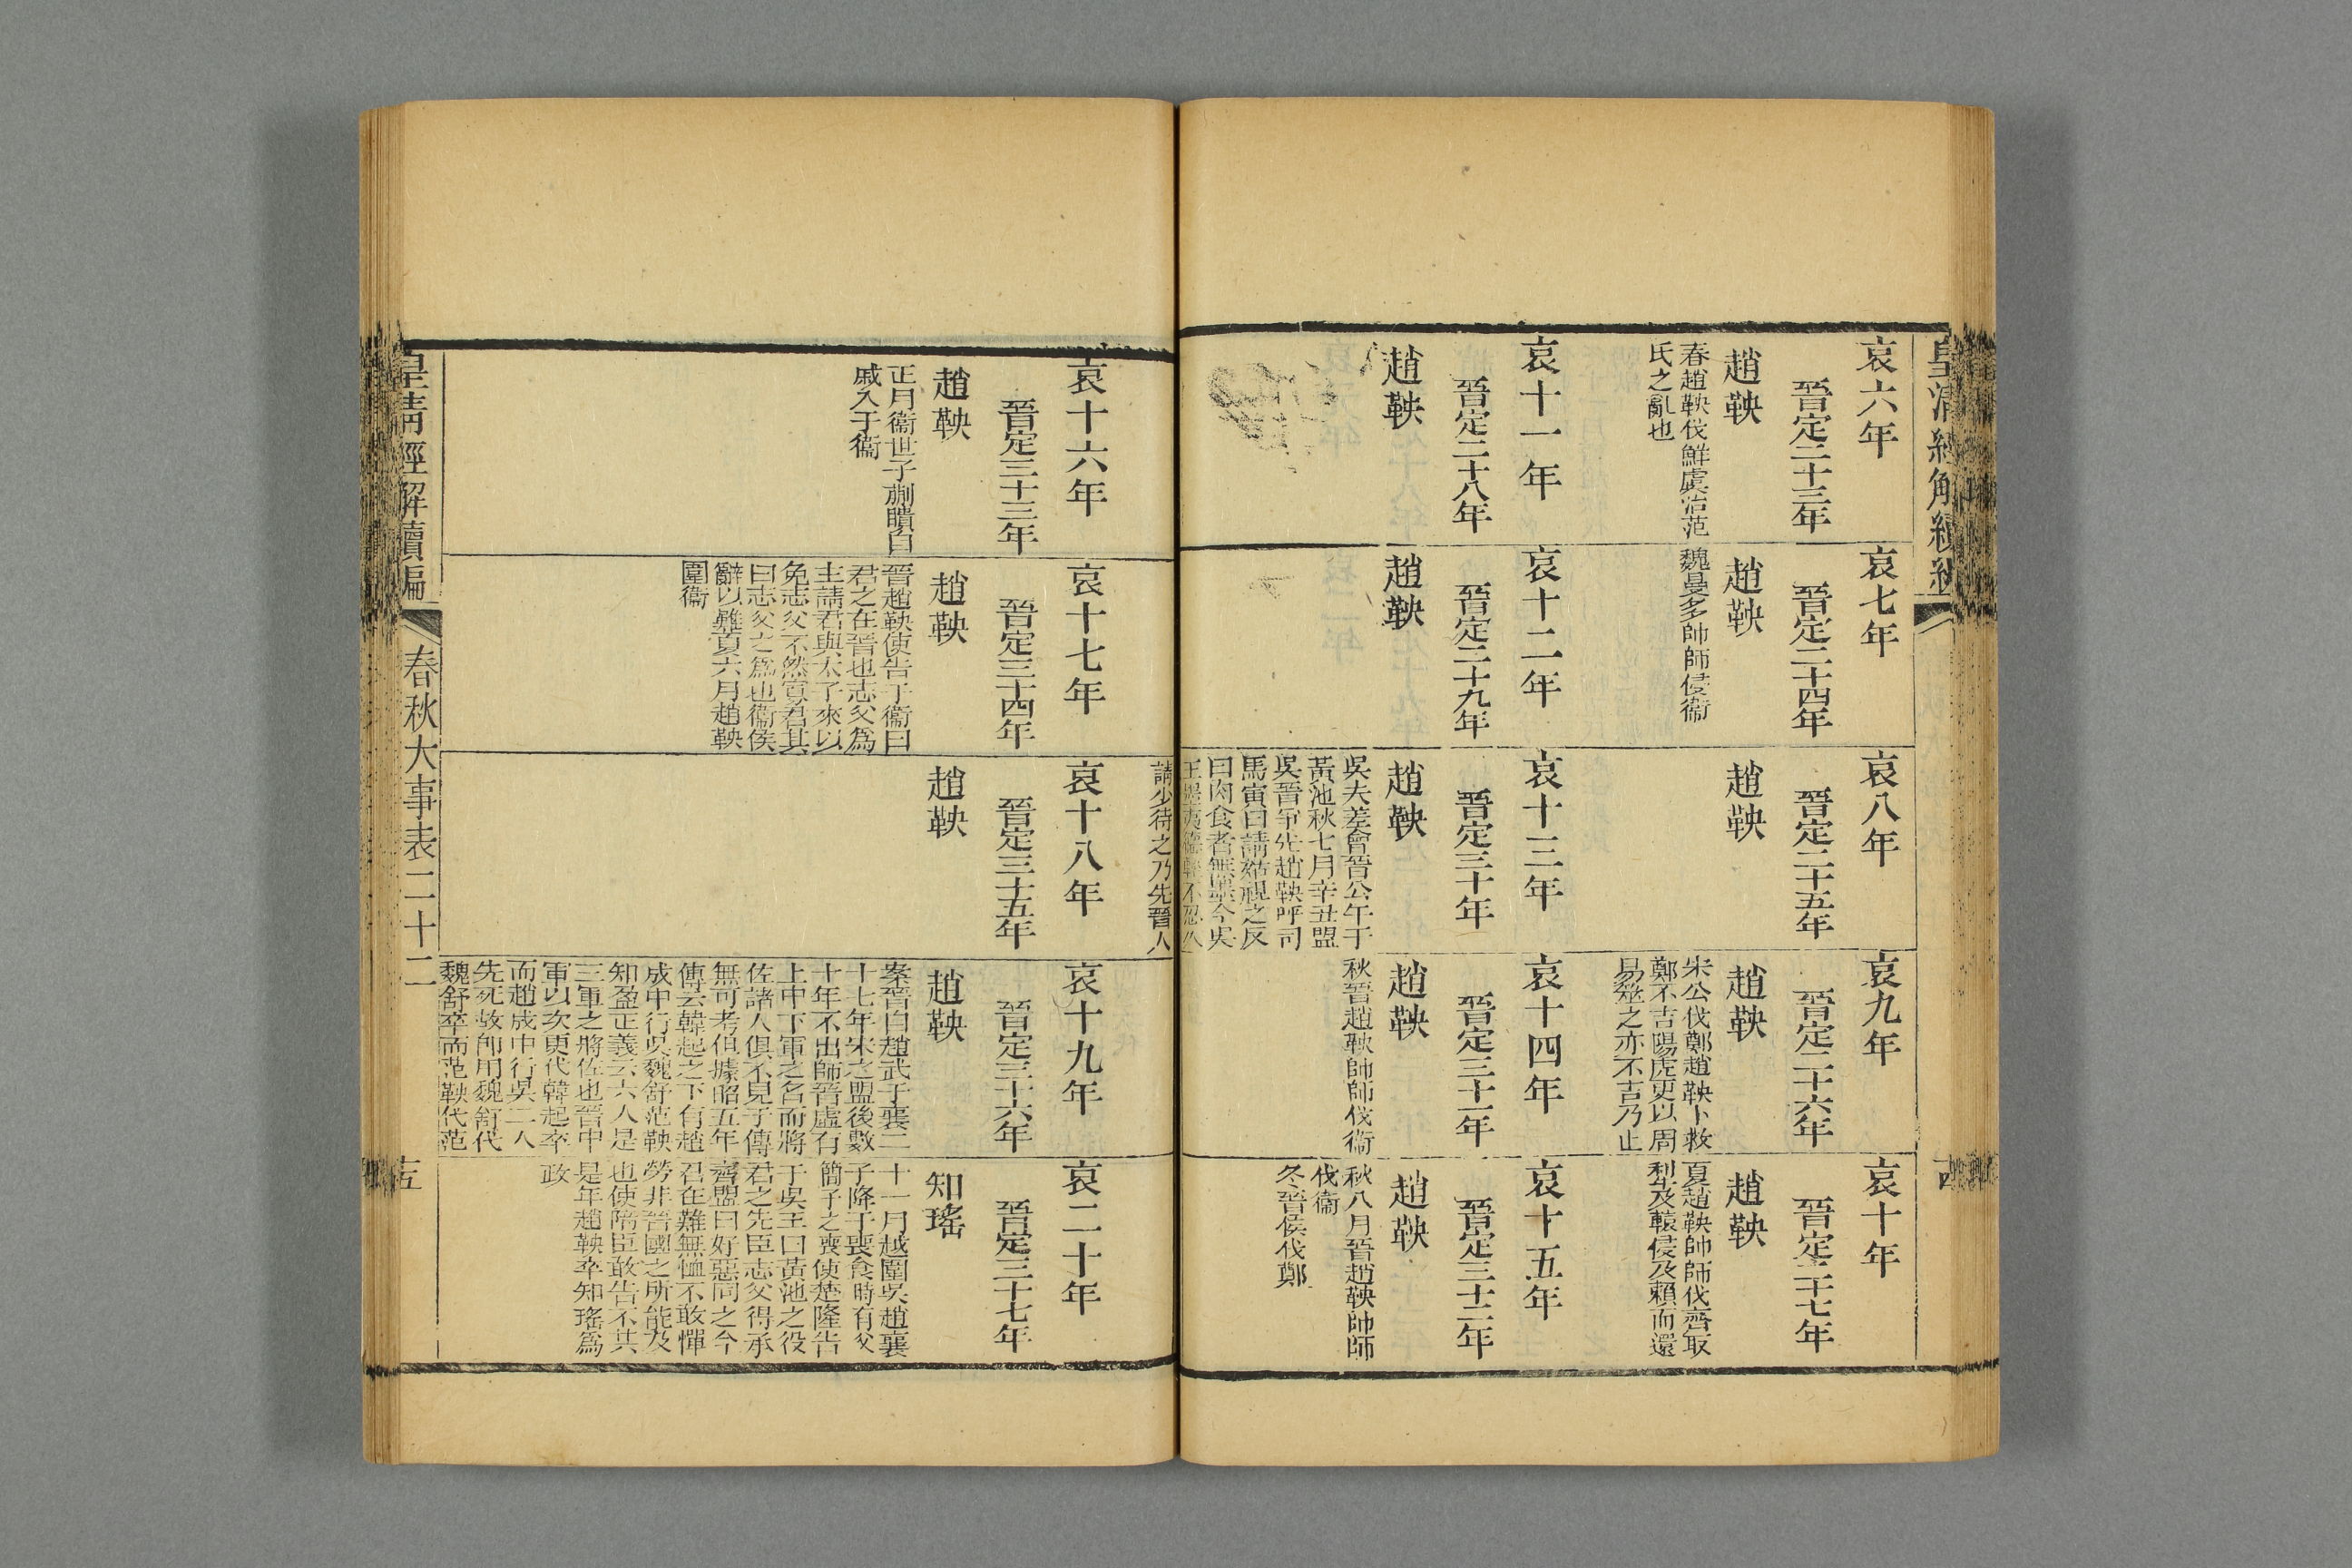 哀六年
晉定二十三年
趙鞅
春趙鞅伐鮮虞治范
氏之亂也
哀七年
晉定二十四年
趙鞅
魏曼多帥師侵衞
哀八年
晉定二十五年
趙鞅
哀九年
晉定二十六年
趙鞅
宋公伐鄭趙鞅卜救
鄭不吉陽虎更以周
易筮之亦不吉乃止
哀十年
晉定二十七年
趙鞅
夏趙鞅帥師伐齊取
犁及轅侵及賴而還
哀十一年
晉定二十八年
趙鞅
哀十二年
晉定二十九年
趙鞅
哀十三年
晉定三十年
趙鞅
吳夫差會晉公午于
黃池秋七月辛丑盟
吳晉爭先趙鞅呼司
馬寅曰請姑視之反
曰肉食者無墨今吳
王墨夷德輕不忍久
請少待之乃先晉人
哀十四年
晉定三十一年
趙鞅
秋晉趙鞅帥師伐衞
哀十五年
晉定三十二年
趙鞅
秋八月晉趙鞅帥師
伐衞
冬晉侯伐鄭
哀十六年
晉定三十三年
趙鞅
正月衞世子蒯聵自
戚入于衞
哀十七年
晉定三十四年
趙鞅
晉趙鞅使告于衞曰
君之在晉也志父爲
主請君與太子來以
免志父不然寡君其
曰志父之爲也衞侯
辭以難夏六月趙鞅
圍衞
哀十八年
晉定三十五年
趙鞅
哀十九年
晉定三十六年
趙鞅
案晉自趙武于襄二
十七年宋之盟後數
十年不出師晉虛有
上中下軍之名而將
佐諸人俱不見于傳
無可考但據昭五年
傳云韓起之下有趙
成中行吳魏舒范鞅
知盈正義云六人是
三軍之將佐也晉中
軍以次更代韓起卒
而趙成中行吳二人
先死故卽用魏舒代
魏舒卒而范鞅代范
哀二十年
晉定三十七年
知瑤
十一月越圍吳趙襄
子降于喪食時有父
簡子之喪使楚隆告
于吳王曰黃池之役
君之先臣志父得承
齊盟曰好惡同之今
君在難無恤不敢憚
勞非晉國之所能及
也使陪臣敢告不共
是年趙鞅卒知瑤爲
政
皇淸經解續編
春秋大事表二十二